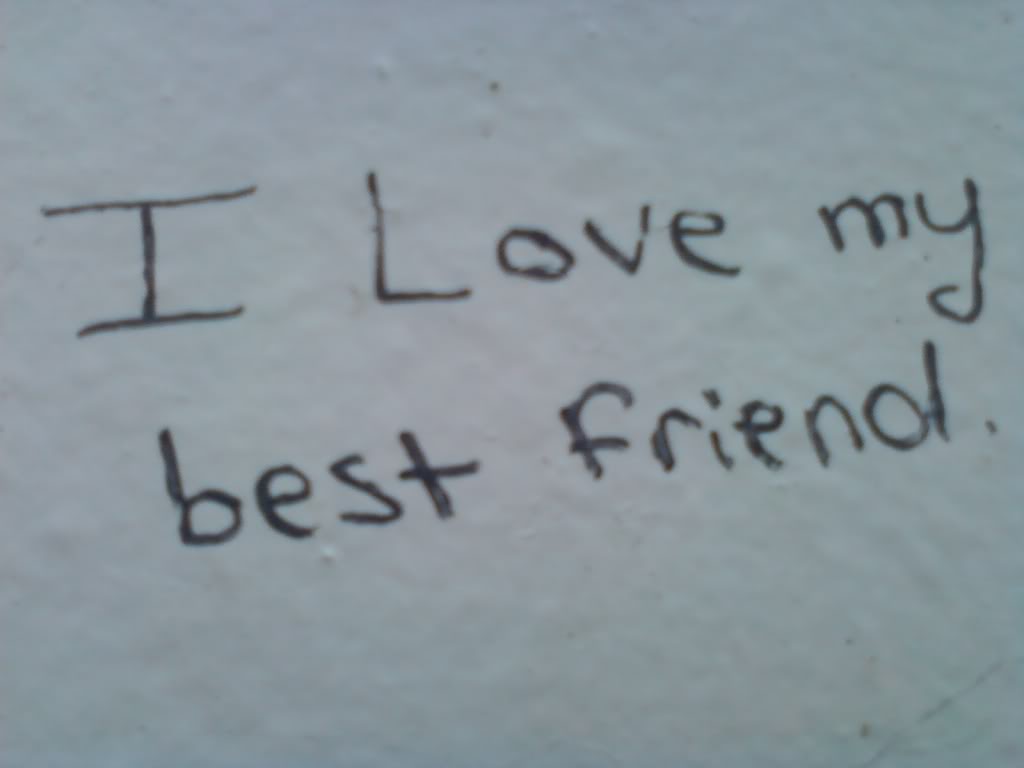 I Love my
best friend.